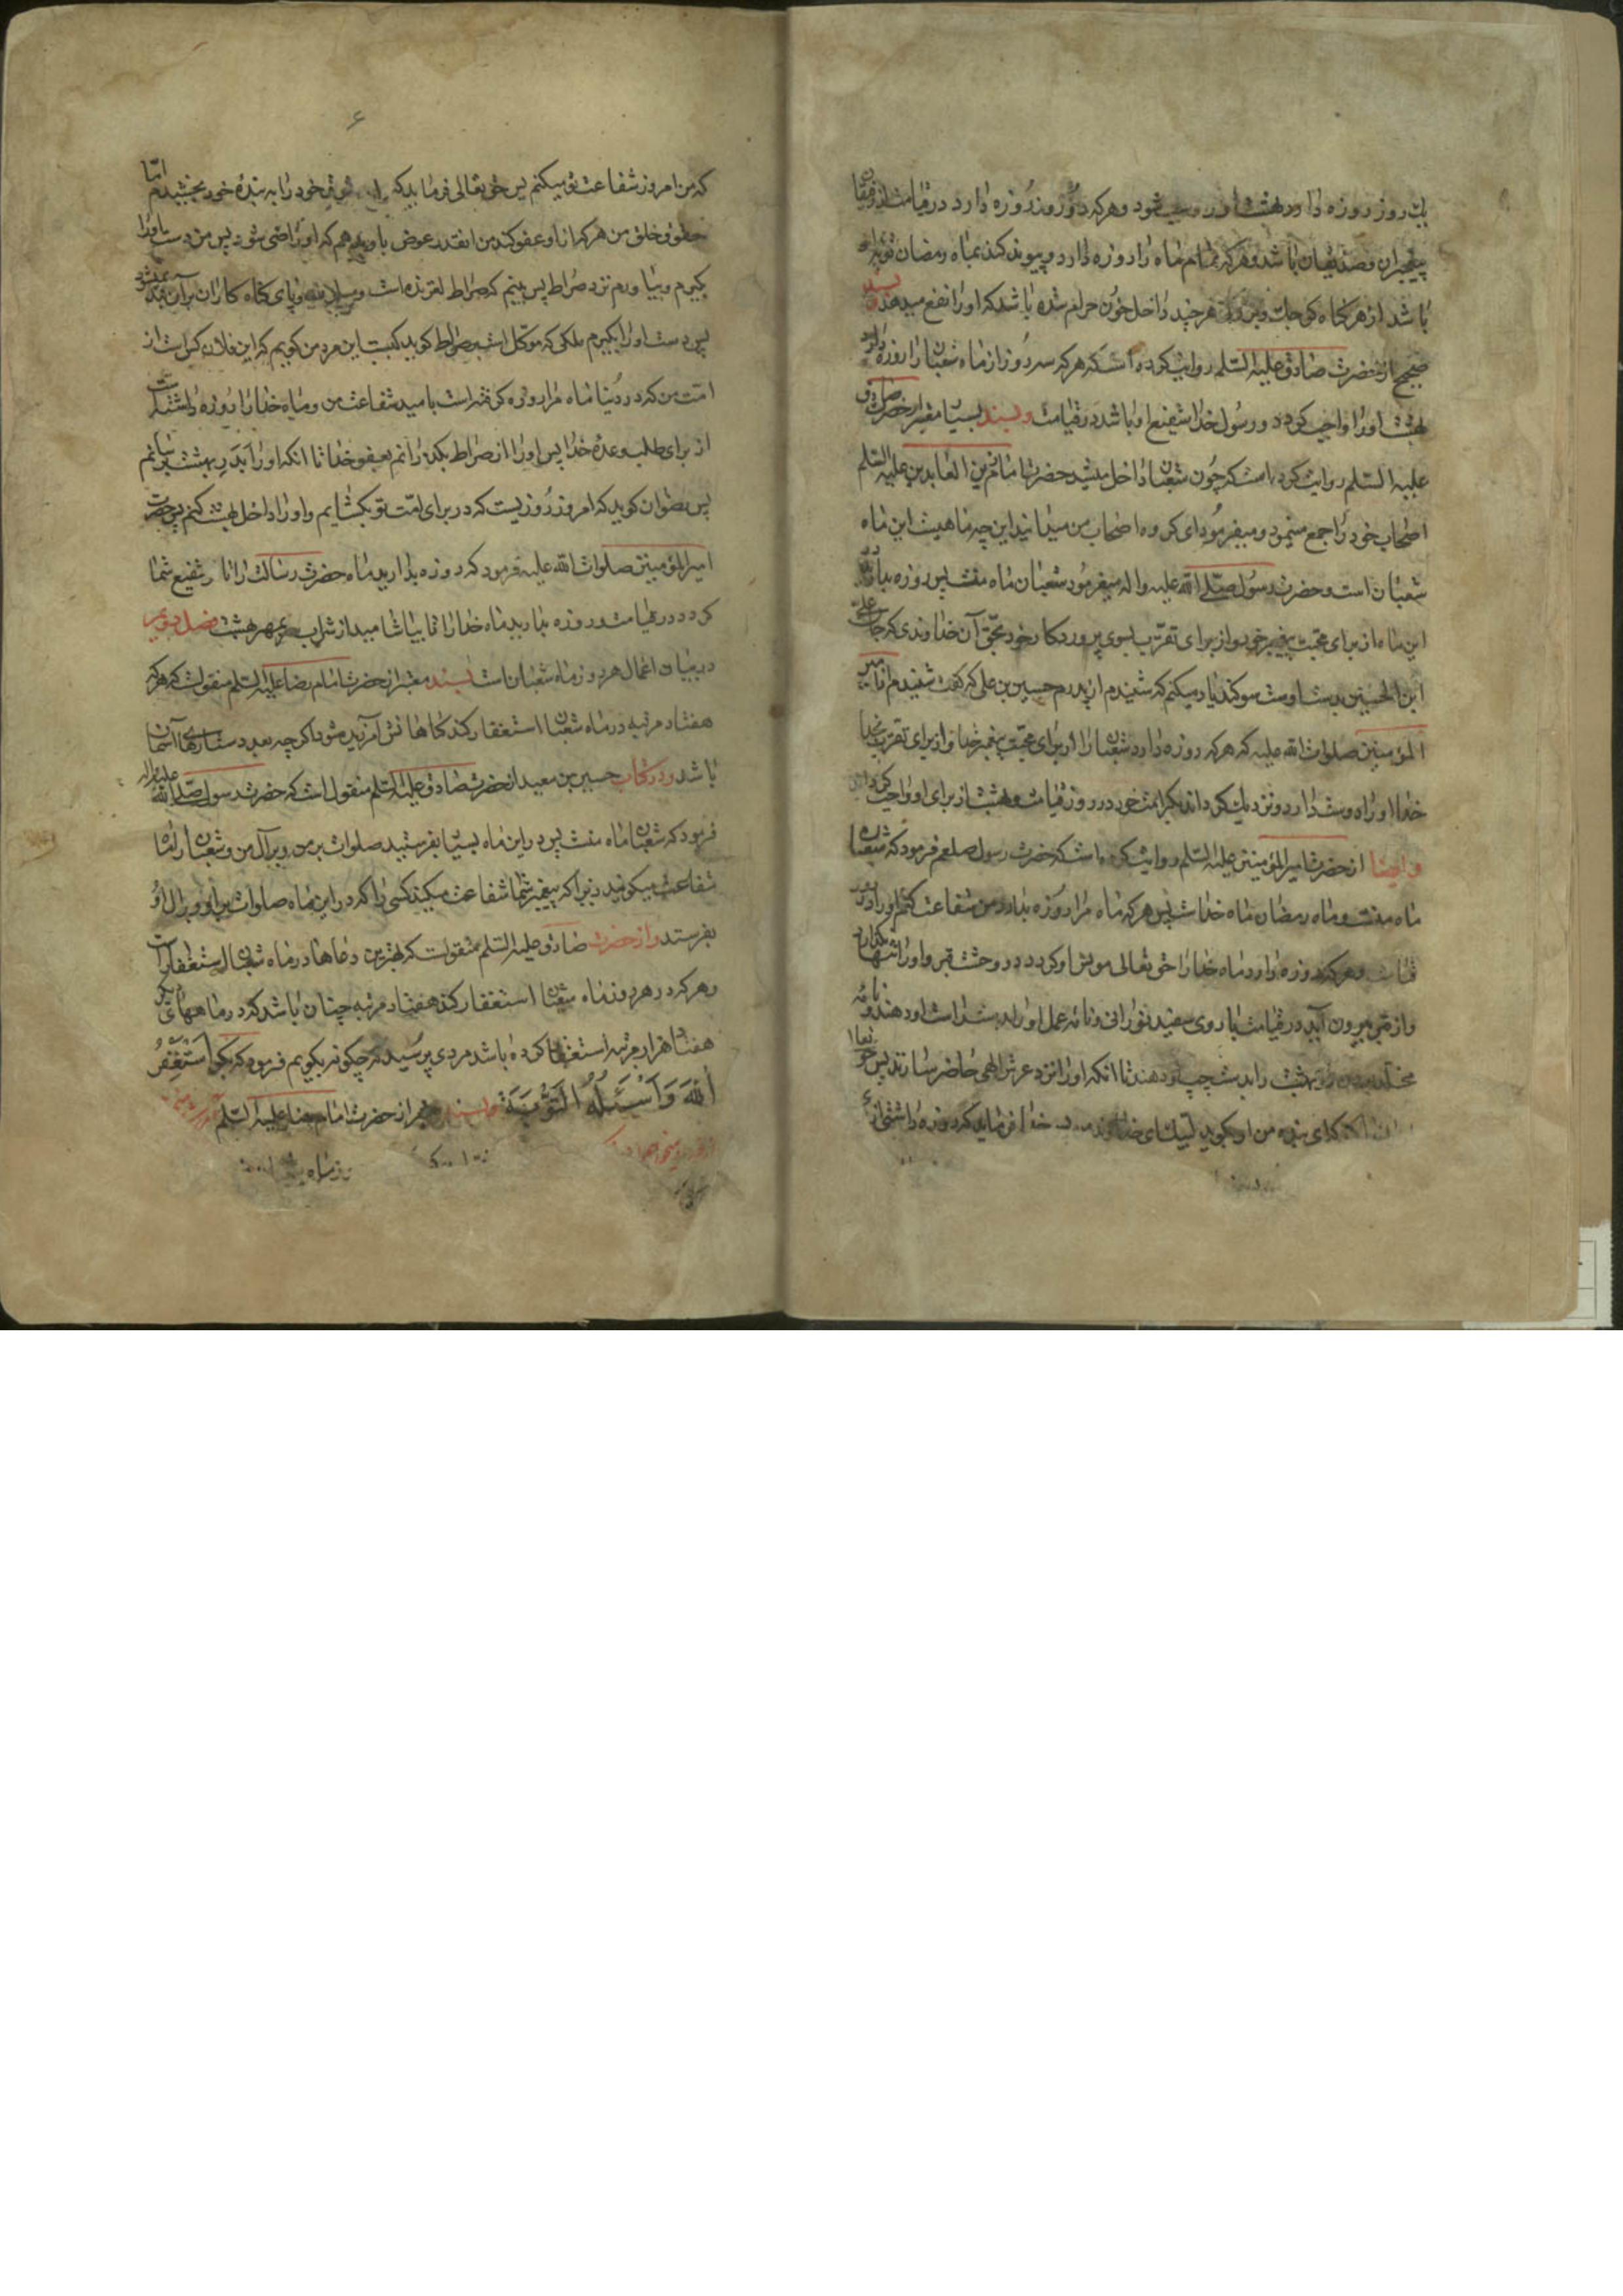 یك روز روزه دارد بهشت او را واجب شود و هر که دو روز روزه دارد در قیامت از رفیقان
پیغمبران و صدیقان باشد و هر که تمام ماه را روزه دارد و پیوند کند بماه رمضان توبه او
باشد از هر کناه کوچك و بزرك هر چند داخل خون حرام شده باشد که او را نفع میدهد و بسند
صحیح از حضرت صادق علیه السّلم روایت کرده است که هر که سه روز از ماه شعبان را روزه دارد
بهشت او را واجب کردد و رسول خدا شفیع او باشد در قیامت و بسند بسیار معتبر از حضرت صادق
علیه السّلم روایت کرده است که چون شعبان داخل میشد حضرت امام زین العابدین علیه السّلم
اصحاب خود را جمع مینمود و میفرمود ای کروه اصحاب من میدانید این چه ماهیست این ماه
شعبان است و حضرت رسول صلّی الله علیه و اله میفرمود شعبان ماه منست پس روزه بدارید
این ماه از برای محبت پیغمبر خود و از برای تقرّب بسوی پروردکار خود بحقّ آن خداوندی که جان علی
ابن الحسین بدست اوست سوکند یاد میکنم که شنیدم از پدرم حسین بن علی که کفت شنیدم از امیر
المؤمنین صلوات الله علیه که هر که روزه دارد شعبان را از برای محبّت پیغمبر خدا و از برای تقرب بخدا
خدا او را دوست دارد و نزدیك کرداند بکرامت خود در روز قیامت و بهشت از برای او واجب کرداند
و ایضا از حضرت امیر المؤمنین علیه السّلم روایت کرده است که حضرت رسول صلعم فرمود که شعبان
ماه منست و ماه رمضان ماه خداست پس هر که ماه مرا روزه بدارد من شفاعت کنم او را در
قیامت و هر که روزه دارد ماه خدا را حق تعالی مونس او کردد در وحشت قبر و او را تنها نکذارد
و از قبر بیرون آید در قیامت با روی سفید نورانی و نامه عمل او را بدست راست او دهند و نامه
مخلد بودن در بهشت را بدست چپ او دهند تا انکه او را نزد عرش الهی حاضر سازند پس حق تعالی
که ای بنده من او بکوید لبیك ای خداوند من خدا فرماید که روزه داشتی از
۶
که من امروز شفاعت تو میکنم پس حق تعالی فرماید که حقوق خود را به بندهٔ خود بخشیدم امّا
حقوق خلق من هر که از او عفو کند من انقدر عوض باو بدهم که او راضی شود پس من دست او را
بکیرم و بیاورم نزد صراط پس بینم که صراط لغزنده است و پای کناه کاران بر آن بند نمیشود
پس دست او را بکیرم ملکی که موکّل است بصراط کوید کیست این مرد من کویم که این فلان کس است از
امّت من که در دنیا ماه مرا روزه کرفته است بامید شفاعت من و ماه خدا را روزه داشته است
از برای طلب وعدهٔ خدا پس او را از صراط بکذرانم بعفو خدا تا انکه او را بدر بهشت برسانم
پس رضوان کوید که امروز روزیست که در برای امّت تو بکشایم و او را داخل بهشت کنم پس حضرت
امیر المؤمنین صلوات الله علیه فرمود که روزه بدارید ماه حضرت رسالت را تا او شفیع شما
کردد در قیامت و روزه بدارید ماه خدا را تا بیاشامید از شراب سر بمهر بهشت فصل دویم
در بیان اعمال هر روز ماه شعبان است بسند معتبر از حضرت امام رضا علیه السّلم منقولست که هر که
هفتاد مرتبه در ماه شعبان استغفار کند کناهانش آمرزیده شود اکرچه بعدد ستارهای آسمان
باشد و در کتاب حسین بن سعید از حضرت صادق علیه السّلم منقول است که حضرت رسول صلی الله علیه و اله
فرمود که شعبان ماه منست پس در این ماه بسیار بفرستید صلوات بر من و بر آل من و شعبان را ماه
شفاعت میکویند زیرا که پیغمبر شما شفاعت میکند کسی را که در این ماه صلوات بر او و بر ال او
بفرستد و از حضرت صادق علیه السّلم منقولست که بهترین دعاها در ماه شعبان استغفار است
و هر که در هر روز ماه شعبان استغفار کند هفتاد مرتبه چنان باشد که در ماههای دیکر
هفتاد هزار مرتبه استغفار کرده باشد مردی پرسید که چکونه بکویم فرمود که بکو اَستَغفِرُ
اللهَ وَ اَسْئَلُهُ التَّوْبَةَ و بسند معتبر از حضرت امام رضا علیه السّلم
روز ماه